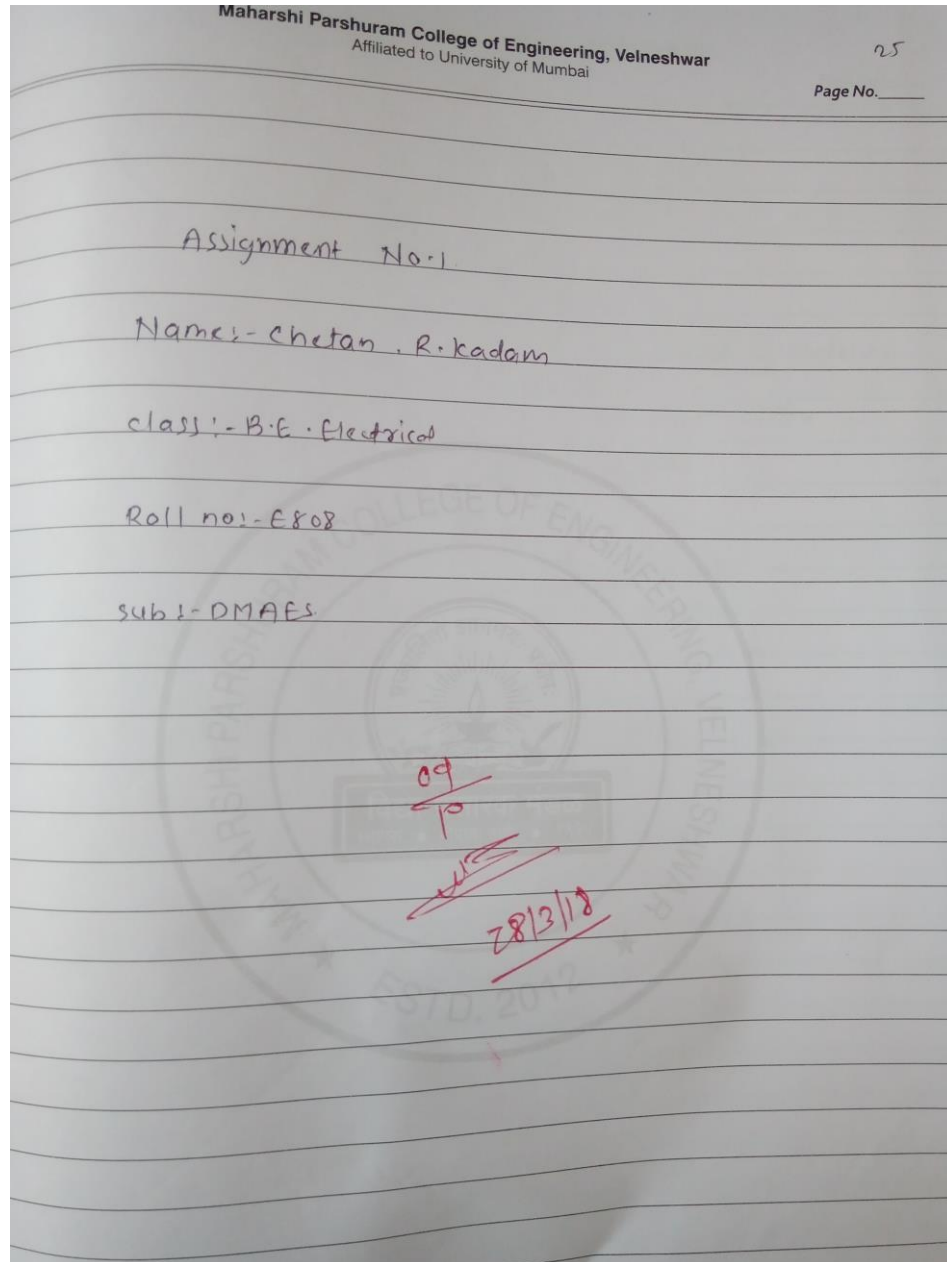 Maharshi Parshuram College of Engineering, Velneshwar
Affiliated to University of Mumbai
25
Page No.
Assignment No.1
Name:- Chetan . R. Kadam
class:- B.E. Electrical
Roll no:- E808
Sub:- DMAES
MAHARSHI PARSHURAM COLLEGE OF ENGINEERING, VELNESHWAR
ESTD. 2012
09
10
28/3/18